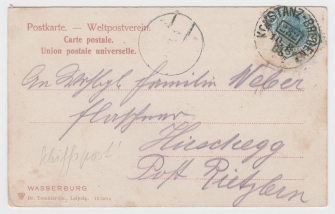 Postkarte. — Weltpostverein.
Carte postale.
Union postale universelle.
KONSTANZ-BREGENZ
An Wohlgb. Familie Weber
Hirschegg
Post Riezlern
Schiffspost!
WASSERBURG
Dr. Trenkler Co., Leipzig.